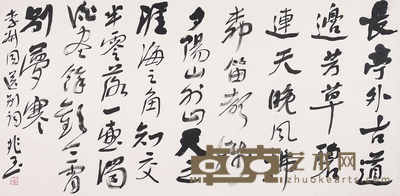 長亭外古道
邊芳草碧
連天晚風拂
柳笛聲殘
夕陽山外山天之
涯海之角知交
半零落一壺濁
酒盡餘歡今宵
别夢寒
李叔同送别詞
艺术网